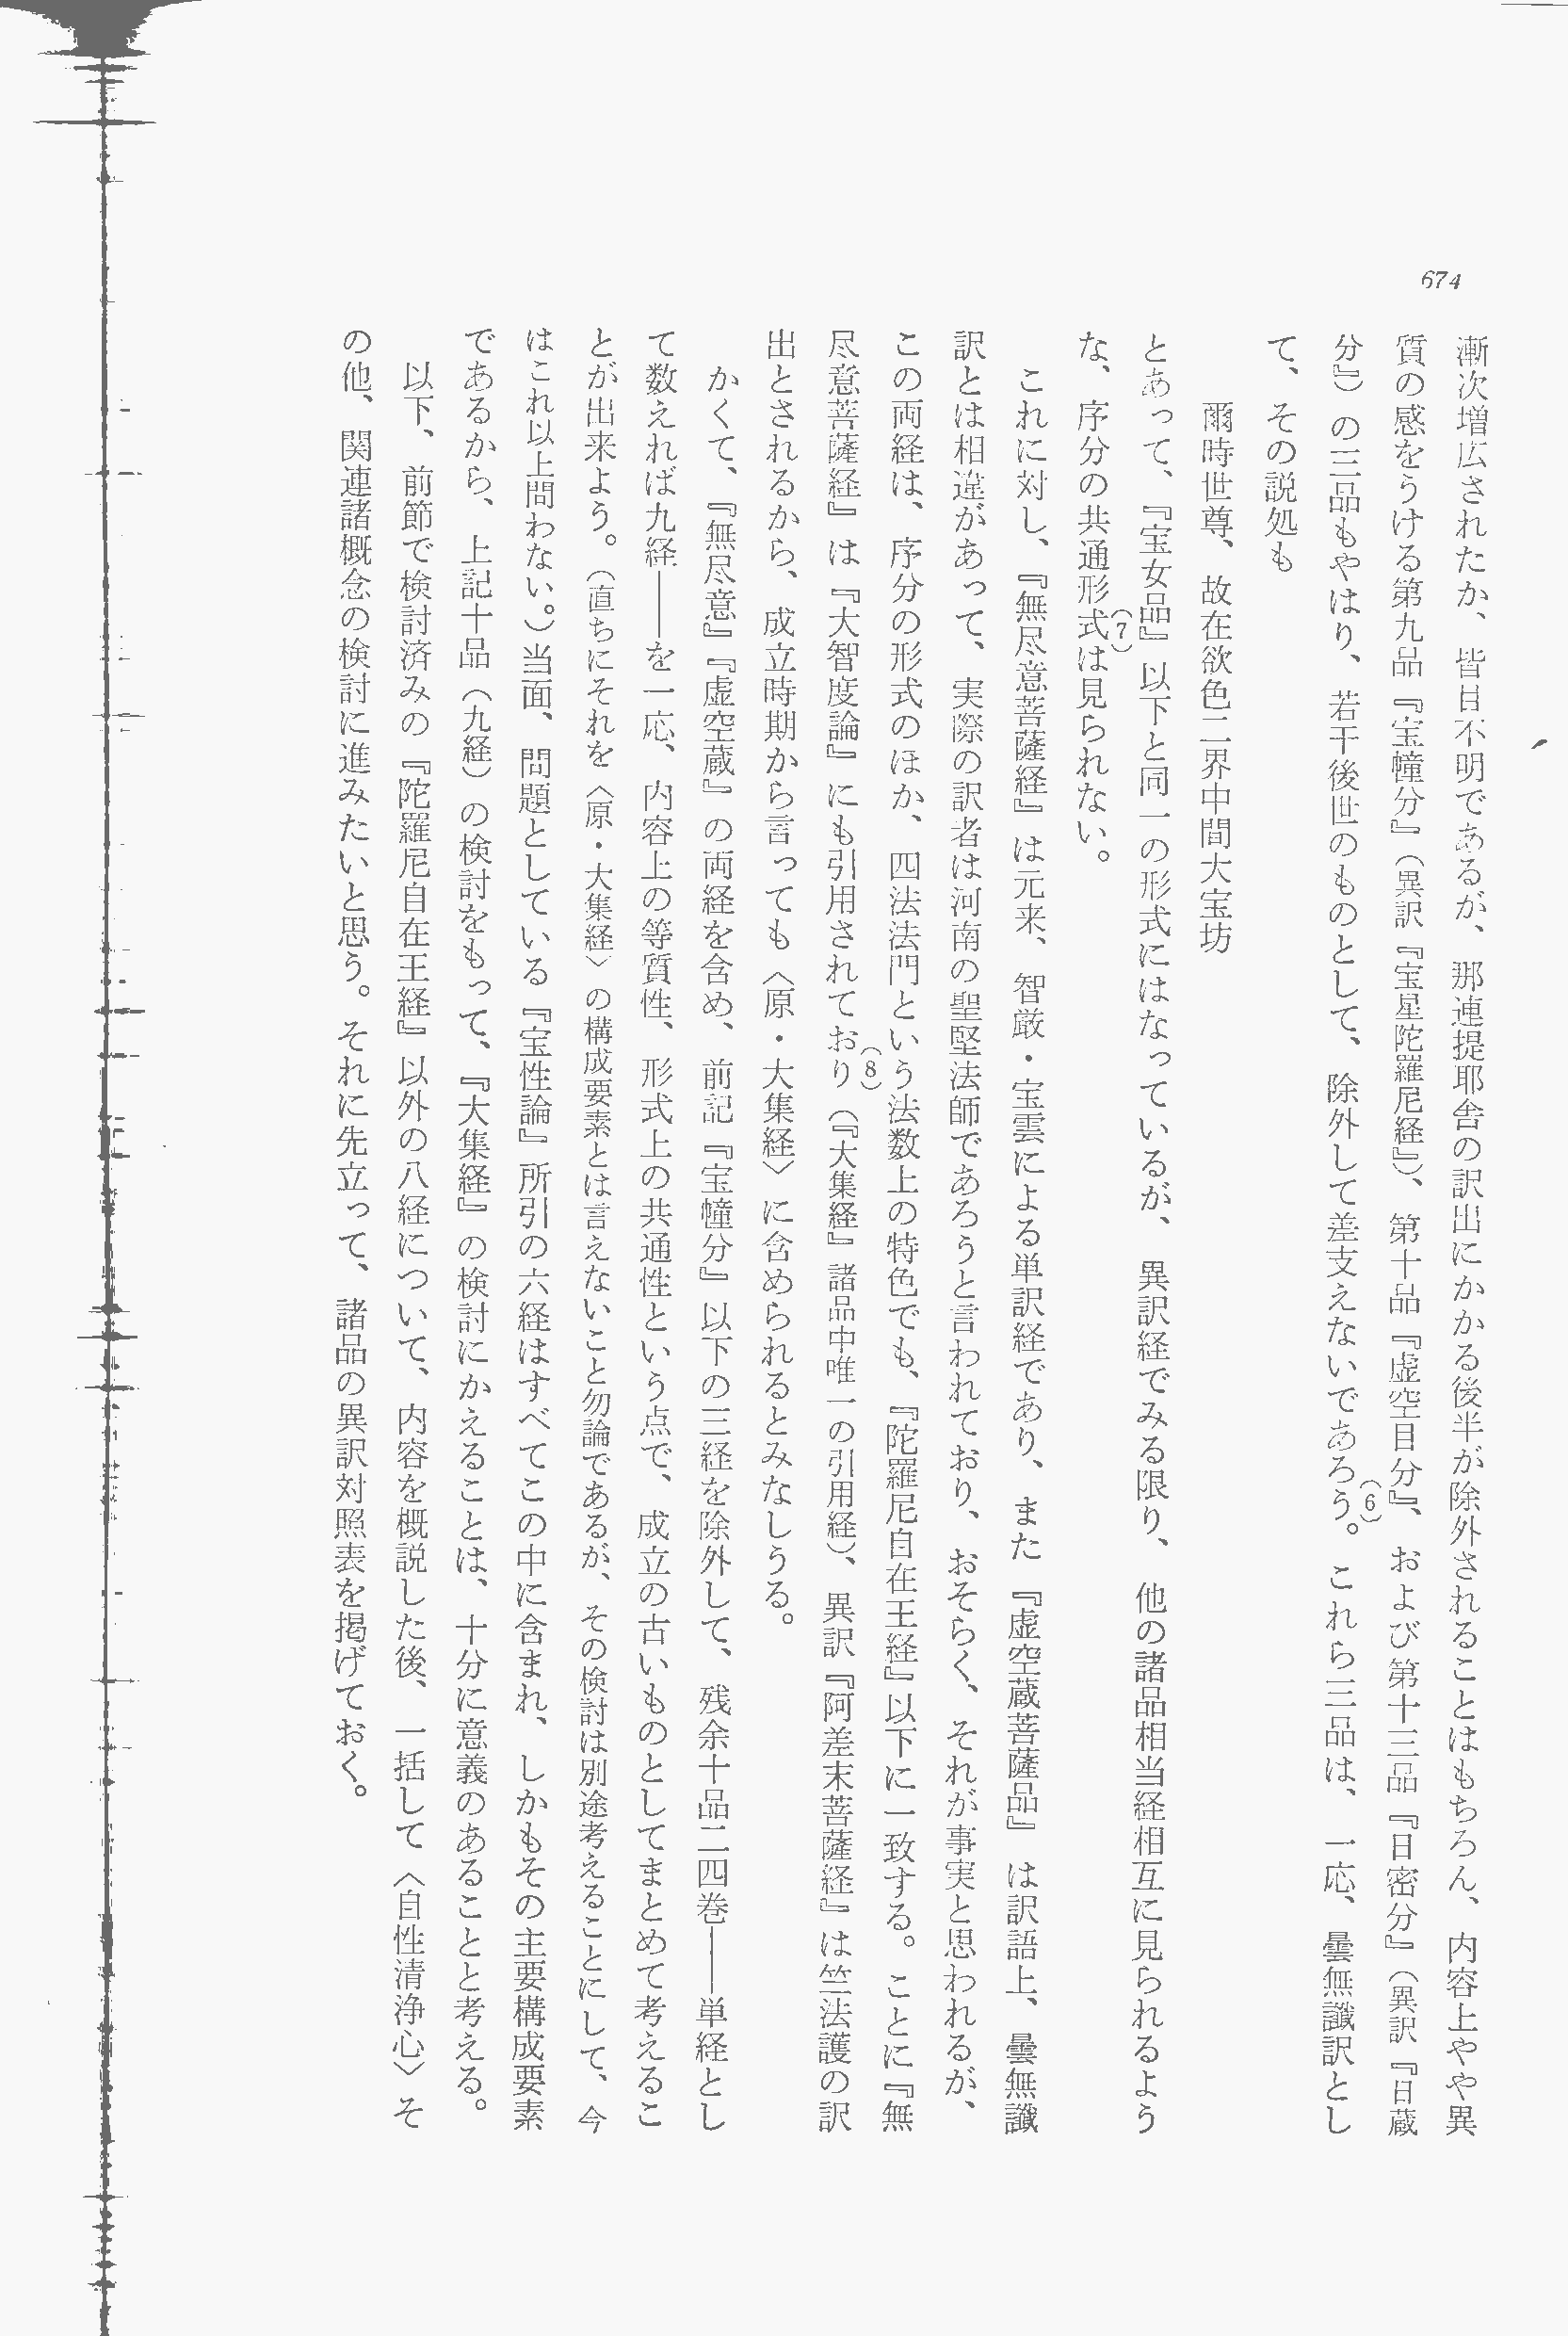 674
漸次増広されたか、皆目不明であるが、那連提耶舎の訳出にかかる後半が除外されることはもちろん、内容上やや異
質の感をうける第九品『宝幢分』（異訳『宝星陀羅尼経』）、第十品『虚空目分』、および第十三品『日密分』（異訳『日蔵
分』）の三品もやはり、若干後世のものとして、除外して差支えないであろう。（6）これら三品は、一応、曇無讖訳とし
て、その説処も
爾時世尊、故在欲色二界中間大宝坊
とあって、『宝女品』以下と同一の形式にはなっているが、異訳経でみる限り、他の諸品相当経相互に見られるよう
な、序分の共通形式（7）は見られない。
これに対し、『無尽意菩薩経』は元来、智厳・宝雲による単訳経であり、また『虚空蔵菩薩品』は訳語上、曇無讖
訳とは相違があって、実際の訳者は河南の聖堅法師であろうと言われており、おそらく、それが事実と思われるが、
この両経は、序分の形式のほか、四法法門という法数上の特色でも、『陀羅尼自在王経』以下に一致する。ことに『無
尽意菩薩経』は『大智度論』にも引用されており（8）（『大集経』諸品中唯一の引用経）、異訳『阿差末菩薩経』は竺法護の訳
出とされるから、成立時期から言っても〈原・大集経〉に含められるとみなしうる。
かくて、『無尽意』『虚空蔵』の両経を含め、前記『宝幢分』以下の三経を除外して、残余十品二四巻――単経とし
て数えれば九経――を一応、内容上の等質性、形式上の共通性という点で、成立の古いものとしてまとめて考えるこ
とが出来よう。（直ちにそれを〈原・大集経〉の構成要素とは言えないこと勿論であるが、その検討は別途考えることにして、今
はこれ以上問わない。）当面、問題としている『宝性論』所引の六経はすべてこの中に含まれ、しかもその主要構成要素
であるから、上記十品（九経）の検討をもって、『大集経』の検討にかえることは、十分に意義のあることと考える。
以下、前節で検討済みの『陀羅尼自在王経』以外の八経について、内容を概説した後、一括して〈自性清浄心〉そ
の他、関連諸概念の検討に進みたいと思う。それに先立って、諸品の異訳対照表を掲げておく。